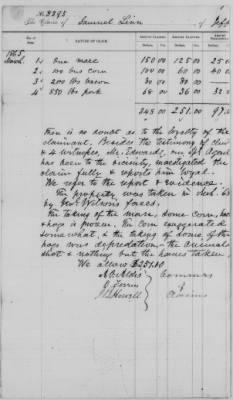 No. 8295
The Claim of Samuel Linn of
NATURE OF CLAIM. AMOUNT CLAIMED. AMOUNT ALLOWED. AMOUNT DISALLOWED.
Dollars. Cts. Dollars. Cts. Dollars. Cts.
1865
March. 1. One mare 150 00 125 00 25 0
2. 100 bus corn 100 00 60 00 40 0
3. 200 lbs bacon 30 00 30 00
4. 850 lbs pork 68 00 36 00 32 0
348 00 251.00 97.0
There is no doubt as to the loyalty of the
claimant. Besides the testimony of clmt
& 4 witnesses, Mr. Edwards, our Spl. Agent
has been to the vicinity, investigated the
claim fully & reports him loyal.
We refer to the report & evidence.
The property was taken in Mch. 65
by Gen. Wilson's forces.
The taking of the mare, some corn,
& hogs is proven. The corn exaggerated
somewhat, & the taking of some of the
hogs was depredation - the animals
shot & nothing but the hams taken.
We allow $251.00
A. O. Aldis
O. Ferriss
J. B. Howell
Commrs
of
Claims